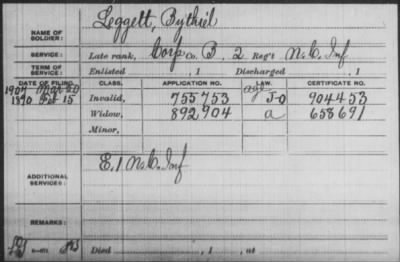 NAME OF SOLDIER: Leggett, Bythiel
SERVICE: Late rank, Corp Co. B, 2 Reg't N.C. Inf
TERM OF SERVICE: Enlisted , 1 Discharged , 1
DATE OF FILING. CLASS. APPLICATION NO. LAW. CERTIFICATE NO.
1907 Mar 20 Invalid, 755753 age J-O 904453
1890 Feb 15 Widow, 892904 a 658691
Minor,
ADDITIONAL SERVICES: E. 1 N.C. Inf
REMARKS:
Died , 1 , at